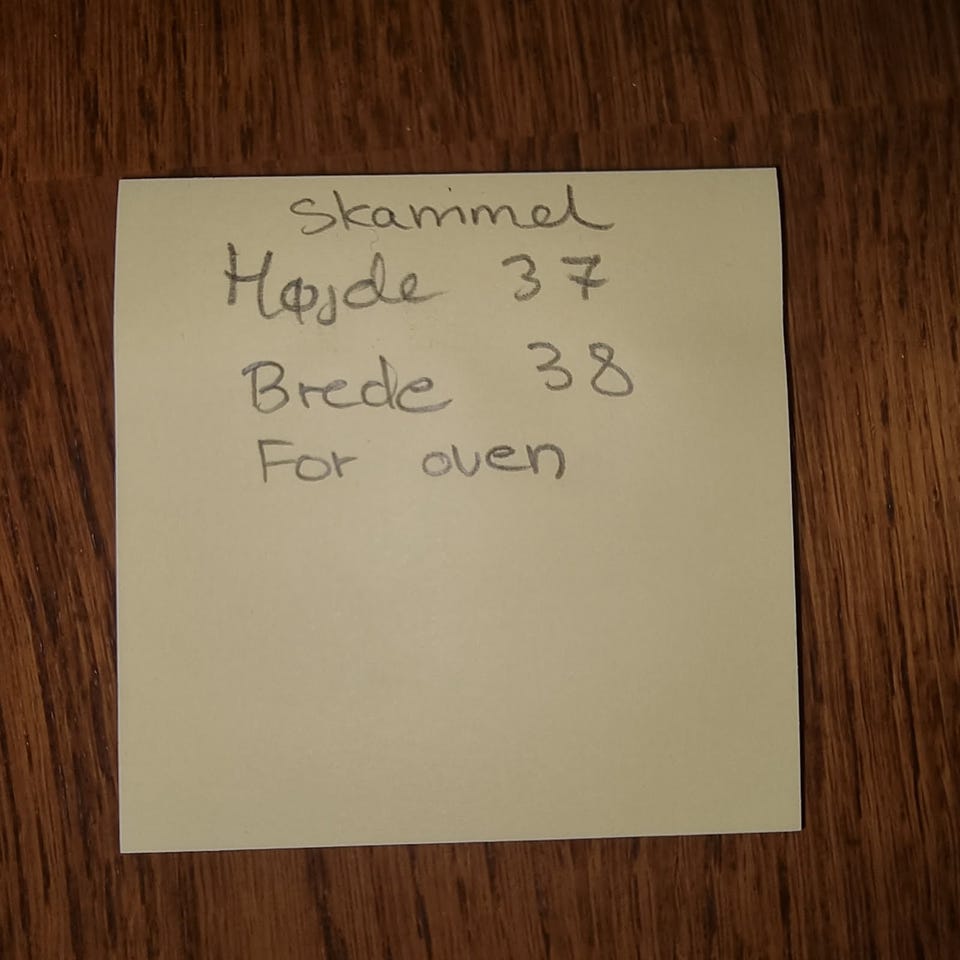 Skammel
Højde 37
Brede 38
For oven